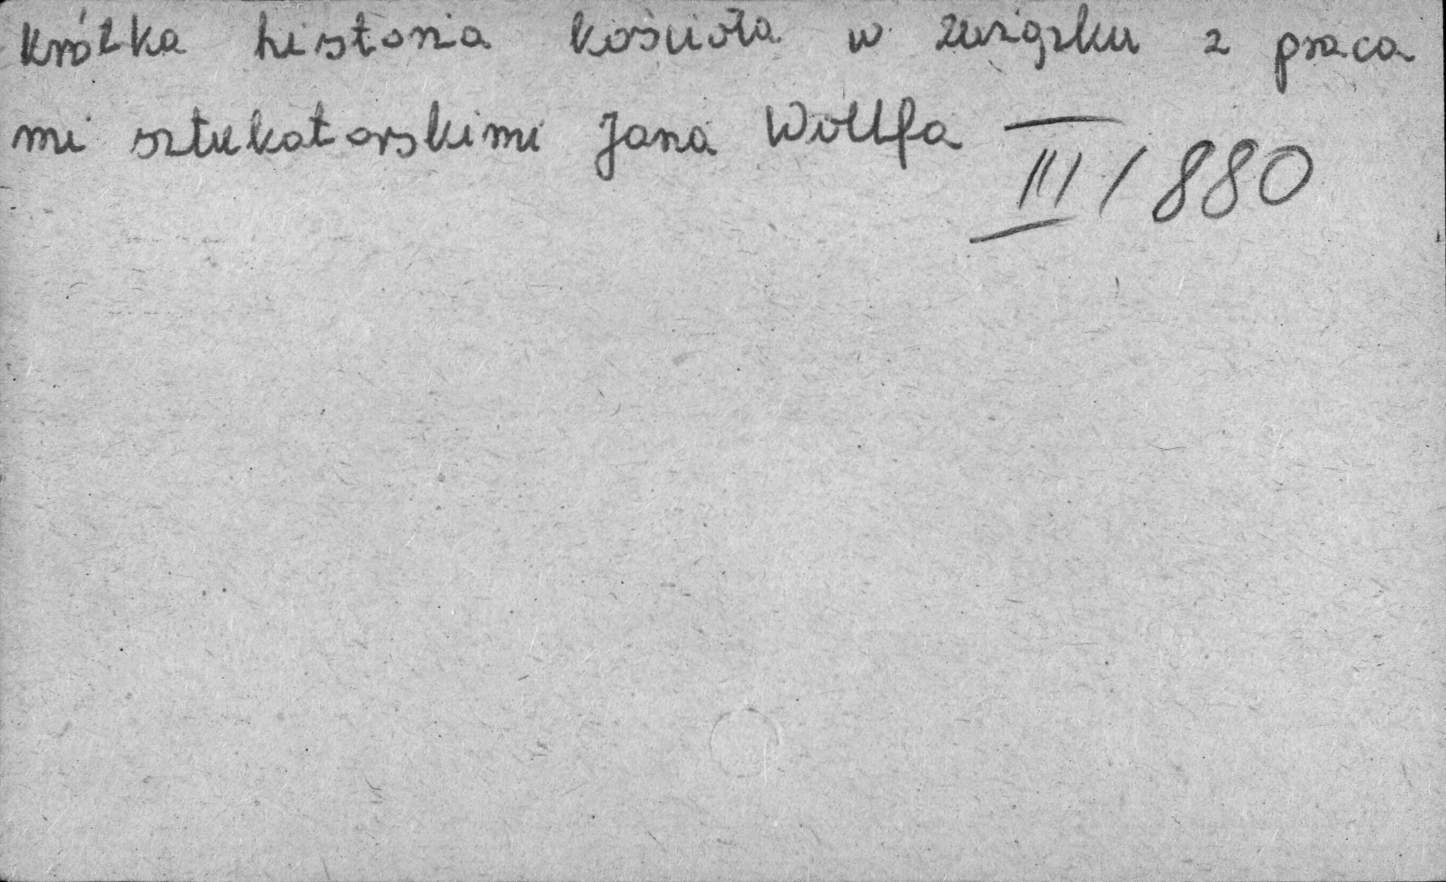 krótka historia kościoła w związku z praca
mi sztukatorskimi Jana Wollfa
III/880